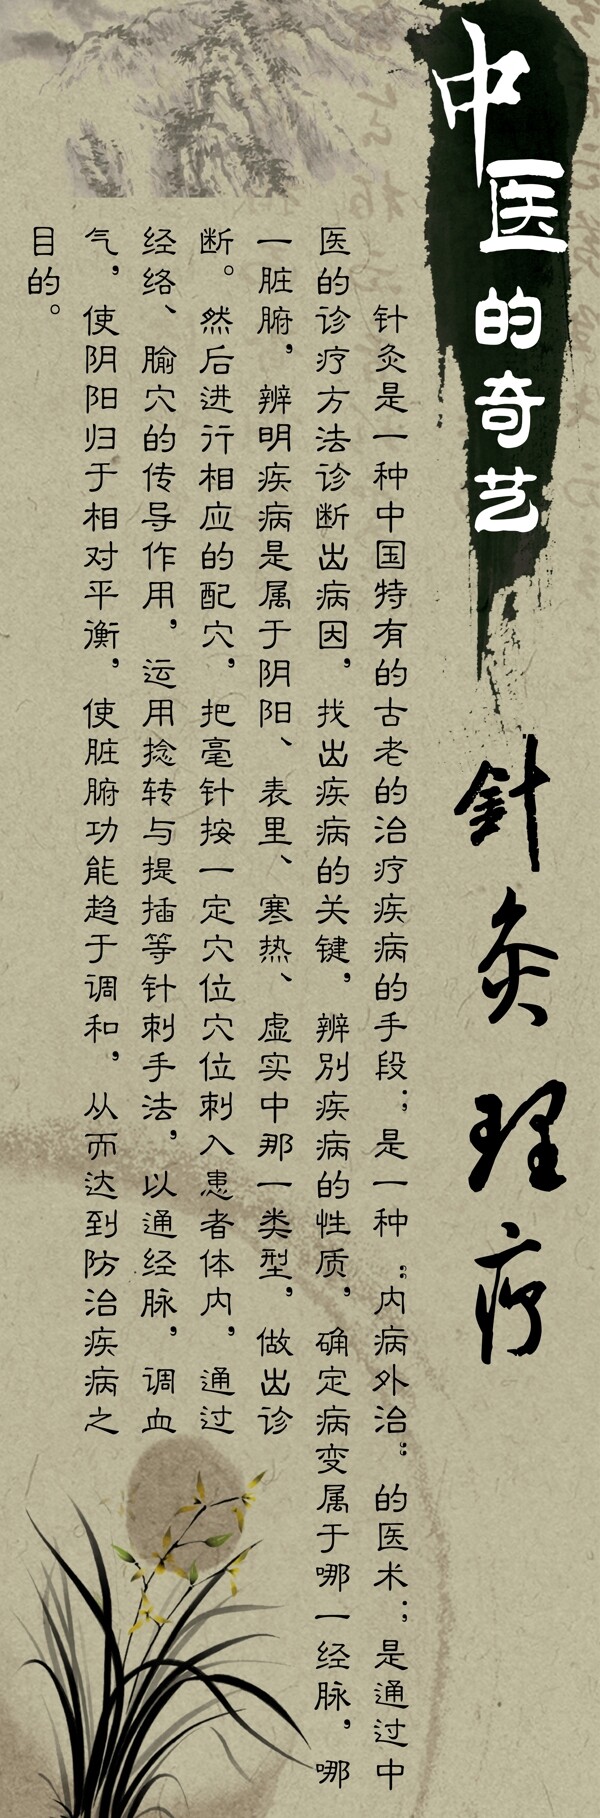 中医的奇艺
針灸理疗
针灸是一种中国特有的古老的治疗疾病的手段；是一种“内病外治”的医术；是通过中
医的诊疗方法诊断出病因，找出疾病的关键，辨别疾病的性质，确定病变属于哪一经脉，哪
一脏腑，辨明疾病是属于阴阳、表里、寒热、虚实中那一类型，做出诊
断。然后进行相应的配穴，把毫针按一定穴位穴位刺入患者体内，通过
经络、腧穴的传导作用，运用捻转与提插等针刺手法，以通经脉，调血
气，使阴阳归于相对平衡，使脏腑功能趋于调和，从而达到防治疾病之
目的。